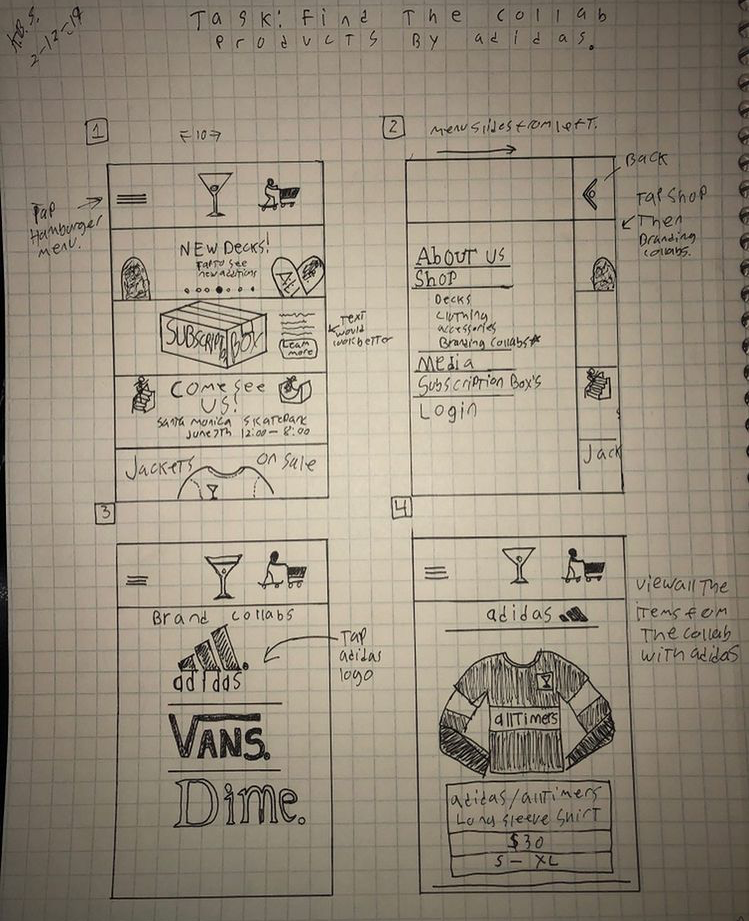 A.B.S.
2-12-19
Task: Find The collab
products By adidas.
1
←10→
Tap
Hamburger
menu.
NEW Decks!
Tap to see
new additions
SUBSCRIPT BOX
Learn
more
Text
would
look better
Come see
US!
Santa Monica Skatepark
June 7th 12:00 - 8:00
Jackets on sale
2
menu slides from left.
Back
Tap Shop
Then
Branding
collabs.
About us
Shop
Decks
Clothing
accessories
Branding collabs*
Media
Subscription Box's
Login
Jack
3
Brand collabs
adidas
Tap
adidas
logo
VANS.
Dime.
4
adidas
allTimers
adidas/allTimers
Long sleeve shirt
$30
S - XL
View all The
items from
The collab
with adidas